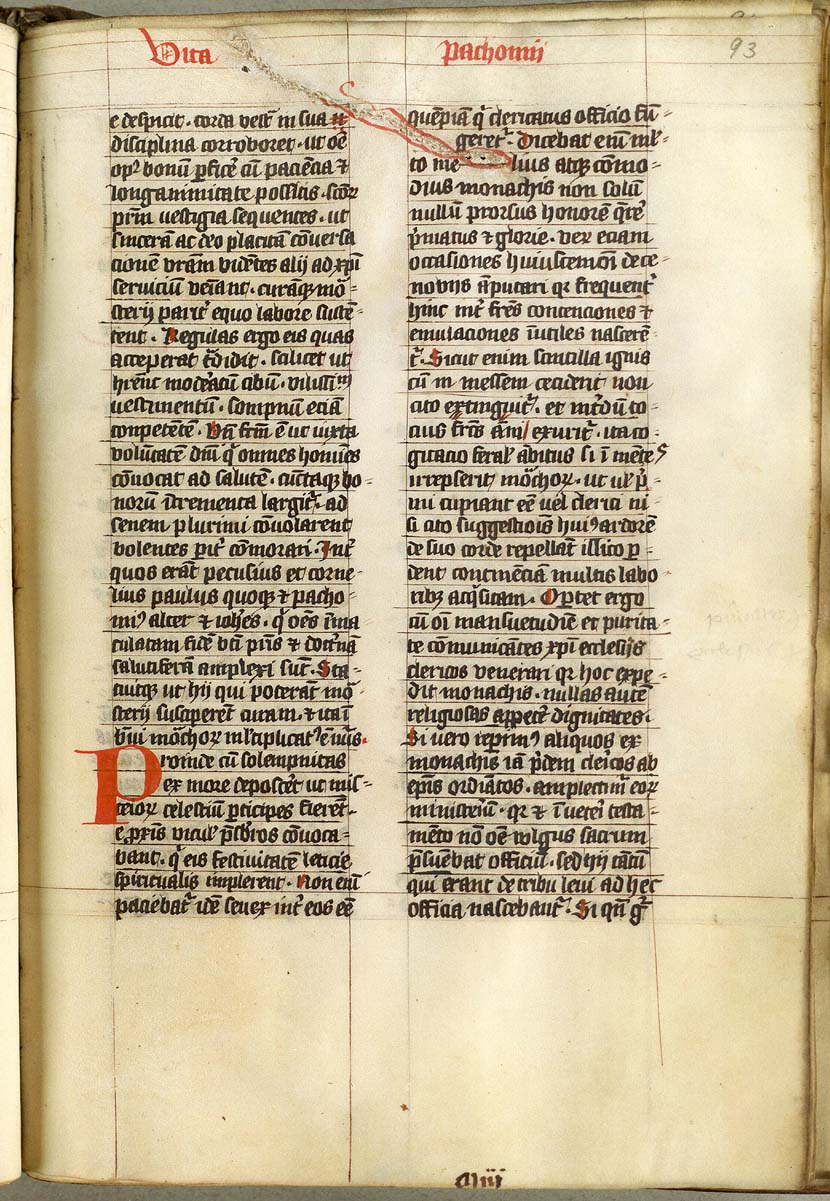 Vita
Pachomii
93
e despicit. corda vestra in sua
disciplina corroboret. ut oē
opꝰ bonū ꝑficē cū paciēcia ⁊
longanimitate possitis. scōꝝ
prīm vestigia sequentes. ut
sincerā ac deo placitā cōversa
cionē vrām videntes alij ad xp̄i
serviciū veīant. curāqꝫ mōa=
sterij pariṫ equo labore susten=
tent. Regulas ergo eis quas
acceperat t̄didit. scilicet ut
hrēnt moderatū cibū. vilissīm
vestimentū. sompnū eciā
conpetētē. Vn̄ fc̄m ē ut iuxta
volūtatē dn̄i qͥ omnes homines
cōvocat ad salutē. cūctaqꝫ bo=
norū īcrementa largitᷣ. ad
senem plurimi cōvolarent
volentes ꝑiṫ cōmorari. Inṫ
quos erāt pecusius et corne=
lius paulus quoqꝫ ⁊ pacho=
miꝰ alter ⁊ ioh̄es. qͥ oēs ī̄ma
culatam fidē bt̄i pr̄is ⁊ doctͥnā
salutiferā amplexi sūt. Sta=
tuitqꝫ ut hij qui poterāt mōa=
sterij susciperēt curam. ⁊ ita ī
bͬvi mōachoꝝ ml̄tiplicatꝰ ē nūs.
Proinde cū solempnitas
ex more deposceṙet ut mis=
terioꝝ celestiū ꝑticipes fierēt.
e ꝓxīs viculꝭ p̄sbr̄os cōvoca=
bant. qͥ eis festivitatē leticie
spiritualis implerent. Non enī
paciebatᷣ idē senex inṫ eos eē
quēpiā qͥ clericatus officio fū=
geretᷣ. Dicebat enī ml̄=
to me lius atqꝫ cōmo=
dius monachis non solū
nullū prorsus honorē qͬre
pͥmatus ⁊ glorie. verū eciam
occasiones huiuscemōi de ce=
nobijs āputari qꝛ frequenṫ
hinc inṫ frēs contenciones ⁊
emulaciones īutiles nascerē=
tᷣ. Sicut enim scintilla ignis
cū in messem cecidērit non
cito extinguitᷣ. et intͬdū to=
cius frēs āni exuritᷣ. ita co=
gitacio feralꝭ ambitus si ī mētes
irrepserit mōachoꝝ. ut vel pͥ=
mi cupiant eē vel clerici ni=
si cito suggestiōis huiꝰ ardorē
de suo corde repellāt illico ꝑ=
dent cōtinēciam multis labo=
ribꝫ acqͥsitam. Oportet ergo
cū oī mansuetudīe et purita=
te cōmunicātes xp̄i ecclesijs
clericos venerari qꝛ hoc expe=
dit monachis. nullas autē
religiosas appetē dignitates.
Si vero reꝑimꝰ aliquos ex
monachis iā pͥdem clericos ab
ep̄is ordiātos. amplectimᷣ eoꝝ
ministeriū. qꝛ ⁊ ī veteri testa=
mēto nō oē volgus sacrum
p̄sumebat officiū. sed hij tātū
qui erant de tribu levi ad hec
officia nascebantᷣ. Si qn̄ gͦ